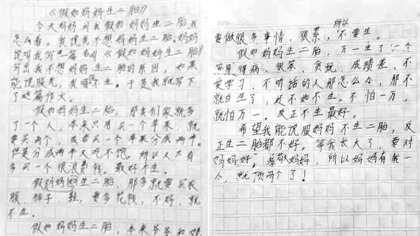 《假如妈妈生二胎》
今天妈妈问我假如妈妈生二胎我
怎么看。我说我不想妈妈生二胎妈妈
说叫我写一篇书《假如妈妈生二胎》
写出我不想妈妈生二胎的原因,如果
能说服我,我就不生。于是我就写下
了这篇作文。
假如妈妈生二胎,那我们家就多
了一个人,本来只有买一个苹果,就
要买两个,或者买一个苹果分成两半。
但是分成两半又吃不饱。所以又只有
多买一个很浪费钱。最好不生。
假如妈妈生二胎,那多就要买衣
服,裤子,鞋,要多花钱,不好,就
不生。
假如妈妈生二胎,本来爷爷和
要做很多事情,很累,所以不要生。
假如妈妈生二胎,万一生了一个
容易得病,很笨,贪玩,成绩差,不
爱学习,不听话的人那怎么办,那不
就白生了,还不如不生。不怕一万,
就怕万一。反正不生最好。
希望我能说服妈妈不生二胎,反
正生二胎都不好。等我长大了,要对
妈妈好。孝敬妈妈,所以妈妈有我一
人,就顶两个了!